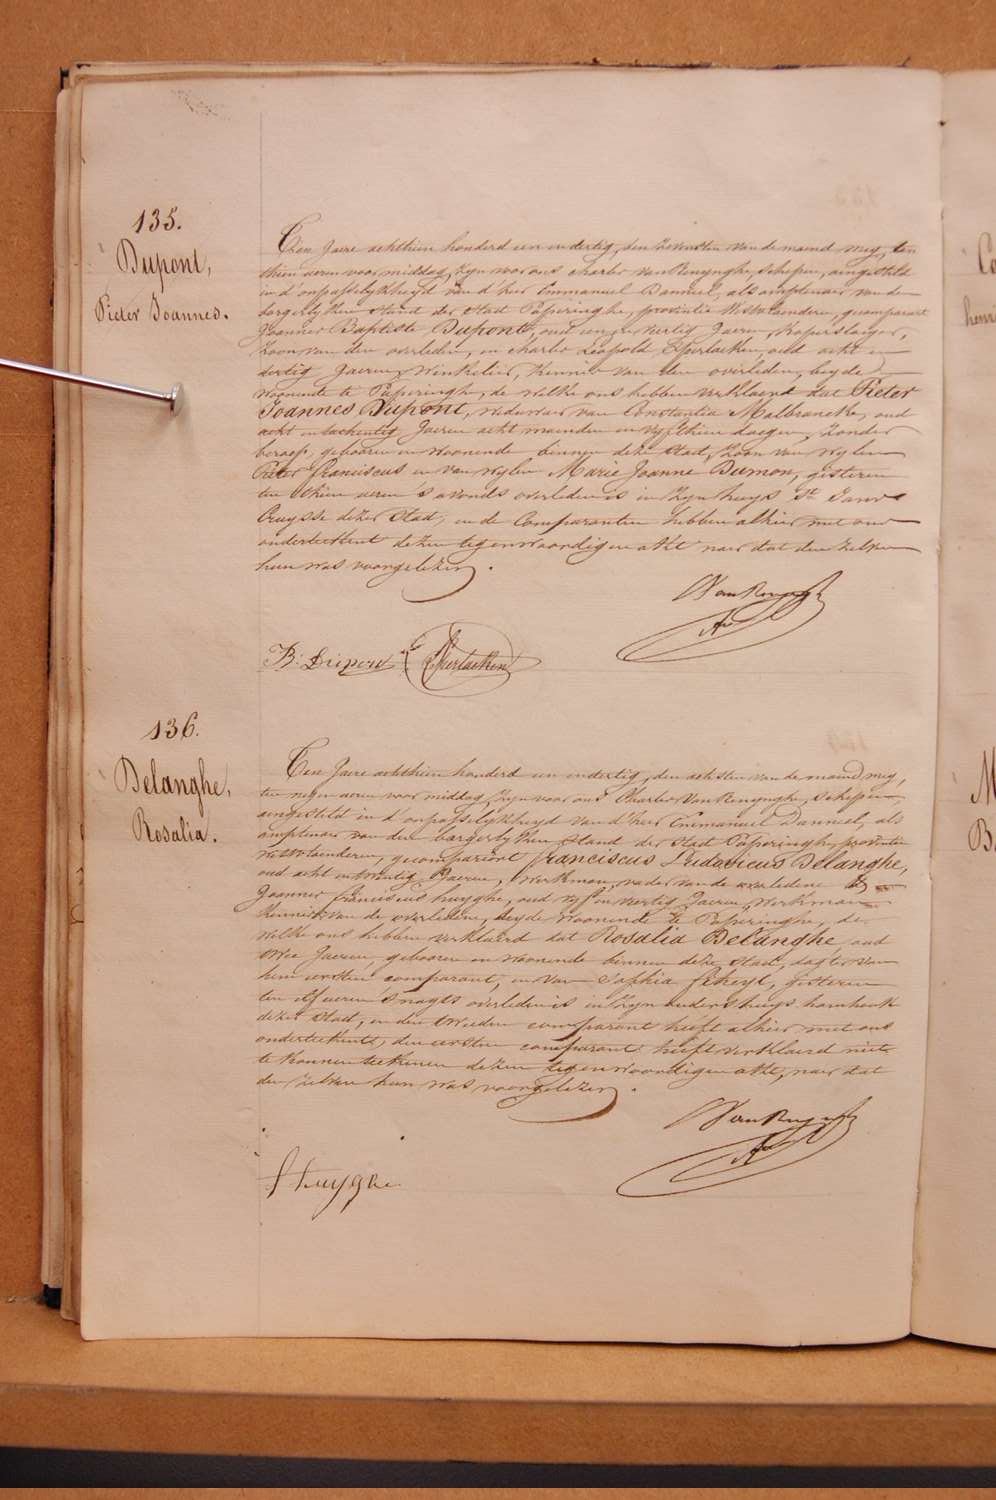 135.
Dupont,
Pieter Joannes.
Ten Jaere achthien honderd een en dertig, den zevensten van de maend mey, ten
thien ueren voor middag, zyn voor ons Charles Van Renynghe, schepen, aengesteld
in d'onpasselykheyd van d'heer Emmanuel Danneel, als amptenaer van den
borgerlyken stand der Stad Poperinghe, provintie Westvlaenderen, gecompareert
Joannes Baptiste Dupont, oud een en veertig Jaeren, koperslaeger,
Zoon van den overleden, en Charles Leopold Sperlaeken, oud acht en
dertig Jaeren, Winkelier, kennis van den overleden, beyde
woonende te Poperinghe, de welke ons hebben verklaerd dat Pieter
Joannes Dupont, weduwaer van Constantia Malbrancke, oud
acht en tachentig Jaeren acht maenden en vyfthien daegen, zonder
beroep, gebooren en woonende binnen deze Stad, Zoon van wylen
Pieter Franciscus en van wylen Marie Joanne Dumon, gisteren
ten thien ueren 's avonds overleden is in zyn huys St. Jans
Cruysse dezer Stad, en de Comparanten hebben alhier met ons
onderteekent dezen tegenwoordigen akt naer dat den zelven
hun was voorgelezen.
VanRenynghe
B: Dupont Sperlaeken
136.
Delanghe,
Rosalia.
Ten Jaere achthien honderd een en dertig, den achsten van de maend mey,
ten negen ueren voor middag, zyn voor ons Charles Van Renynghe, schepen,
aengesteld in d'onpasselykheyd van d'heer Emmanuel Danneel, als
amptenaer van den borgerlyken stand der Stad Poperinghe, provintie
Westvlaenderen, gecompareert Franciscus Ludovicus Delanghe,
oud acht en twintig Jaeren, Werkman, vader van de overledene en
Joannes Franciscus huyghe, oud vyf en veertig Jaeren, Werkman
kennis van de overledene, beyde woonende te Poperinghe, de
welke ons hebben verklaerd dat Rosalia Delanghe, oud
twee Jaeren, gebooren en woonende binnen deze Stad, dogter van
hem eersten comparant, en van Sophia gisteren
ten elf ueren 's nagts overleden is in zyn ouders huys hamhoek
dezer Stad, en den tweeden comparant heeft alhier met ons
onderteekent, den eersten comparant heeft verklaerd niet
te konnen teekenen dezen tegenwoordigen akt, naer dat
den zelven hun was voorgelezen.
VanRenynghe
Huyghe